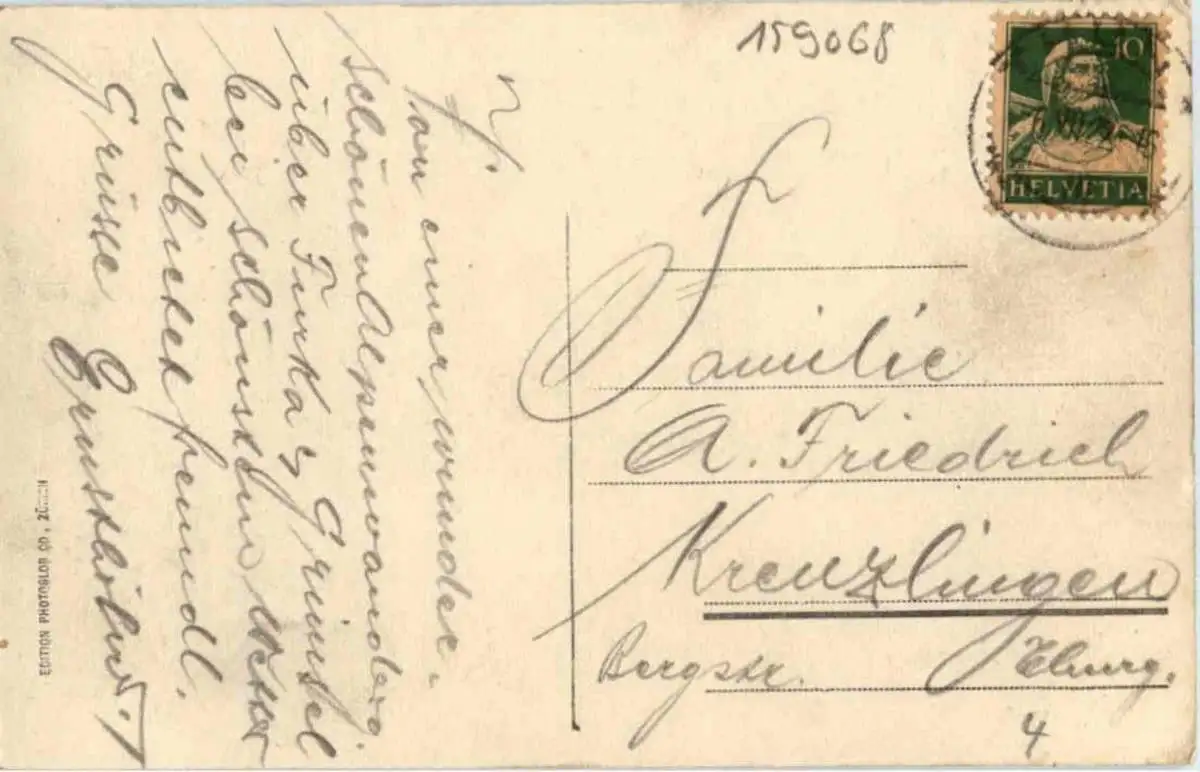 159068
10
HELVETIA
Von einer wunder-
schönen Alpenwanderg.
über Furka & Grimsel
bei schönstem Wetter
entbietet freundl.
Grüsse
Familie
A. Friedrich
Kreuzlingen
Bergstr.
4
EDITION PHOTOGLOB CO., ZÜRICH